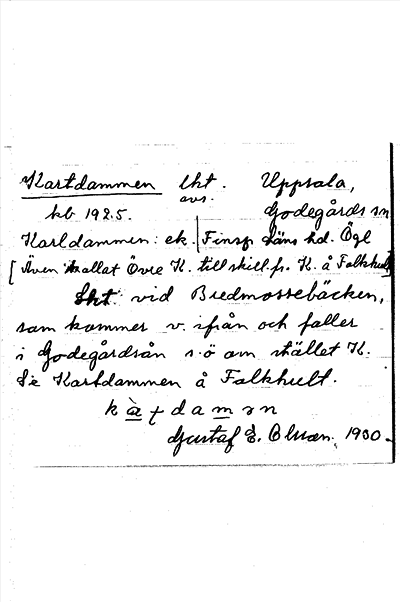 Kartdammen lht. Uppsala,
avs.
kb 1925. Godegårds sn
Karldammen: ek. Finsp. läns hd. Ögl
[Även kallat Övre K. till skill. fr. K. å Falkhult]
Lht: vid Bredmossebäcken,
som kommer v. ifrån och faller
i Godegårdsån s.ö om stället K.
Se Kartdammen å Falkhult.
Gustaf E. Olsson. 1930.